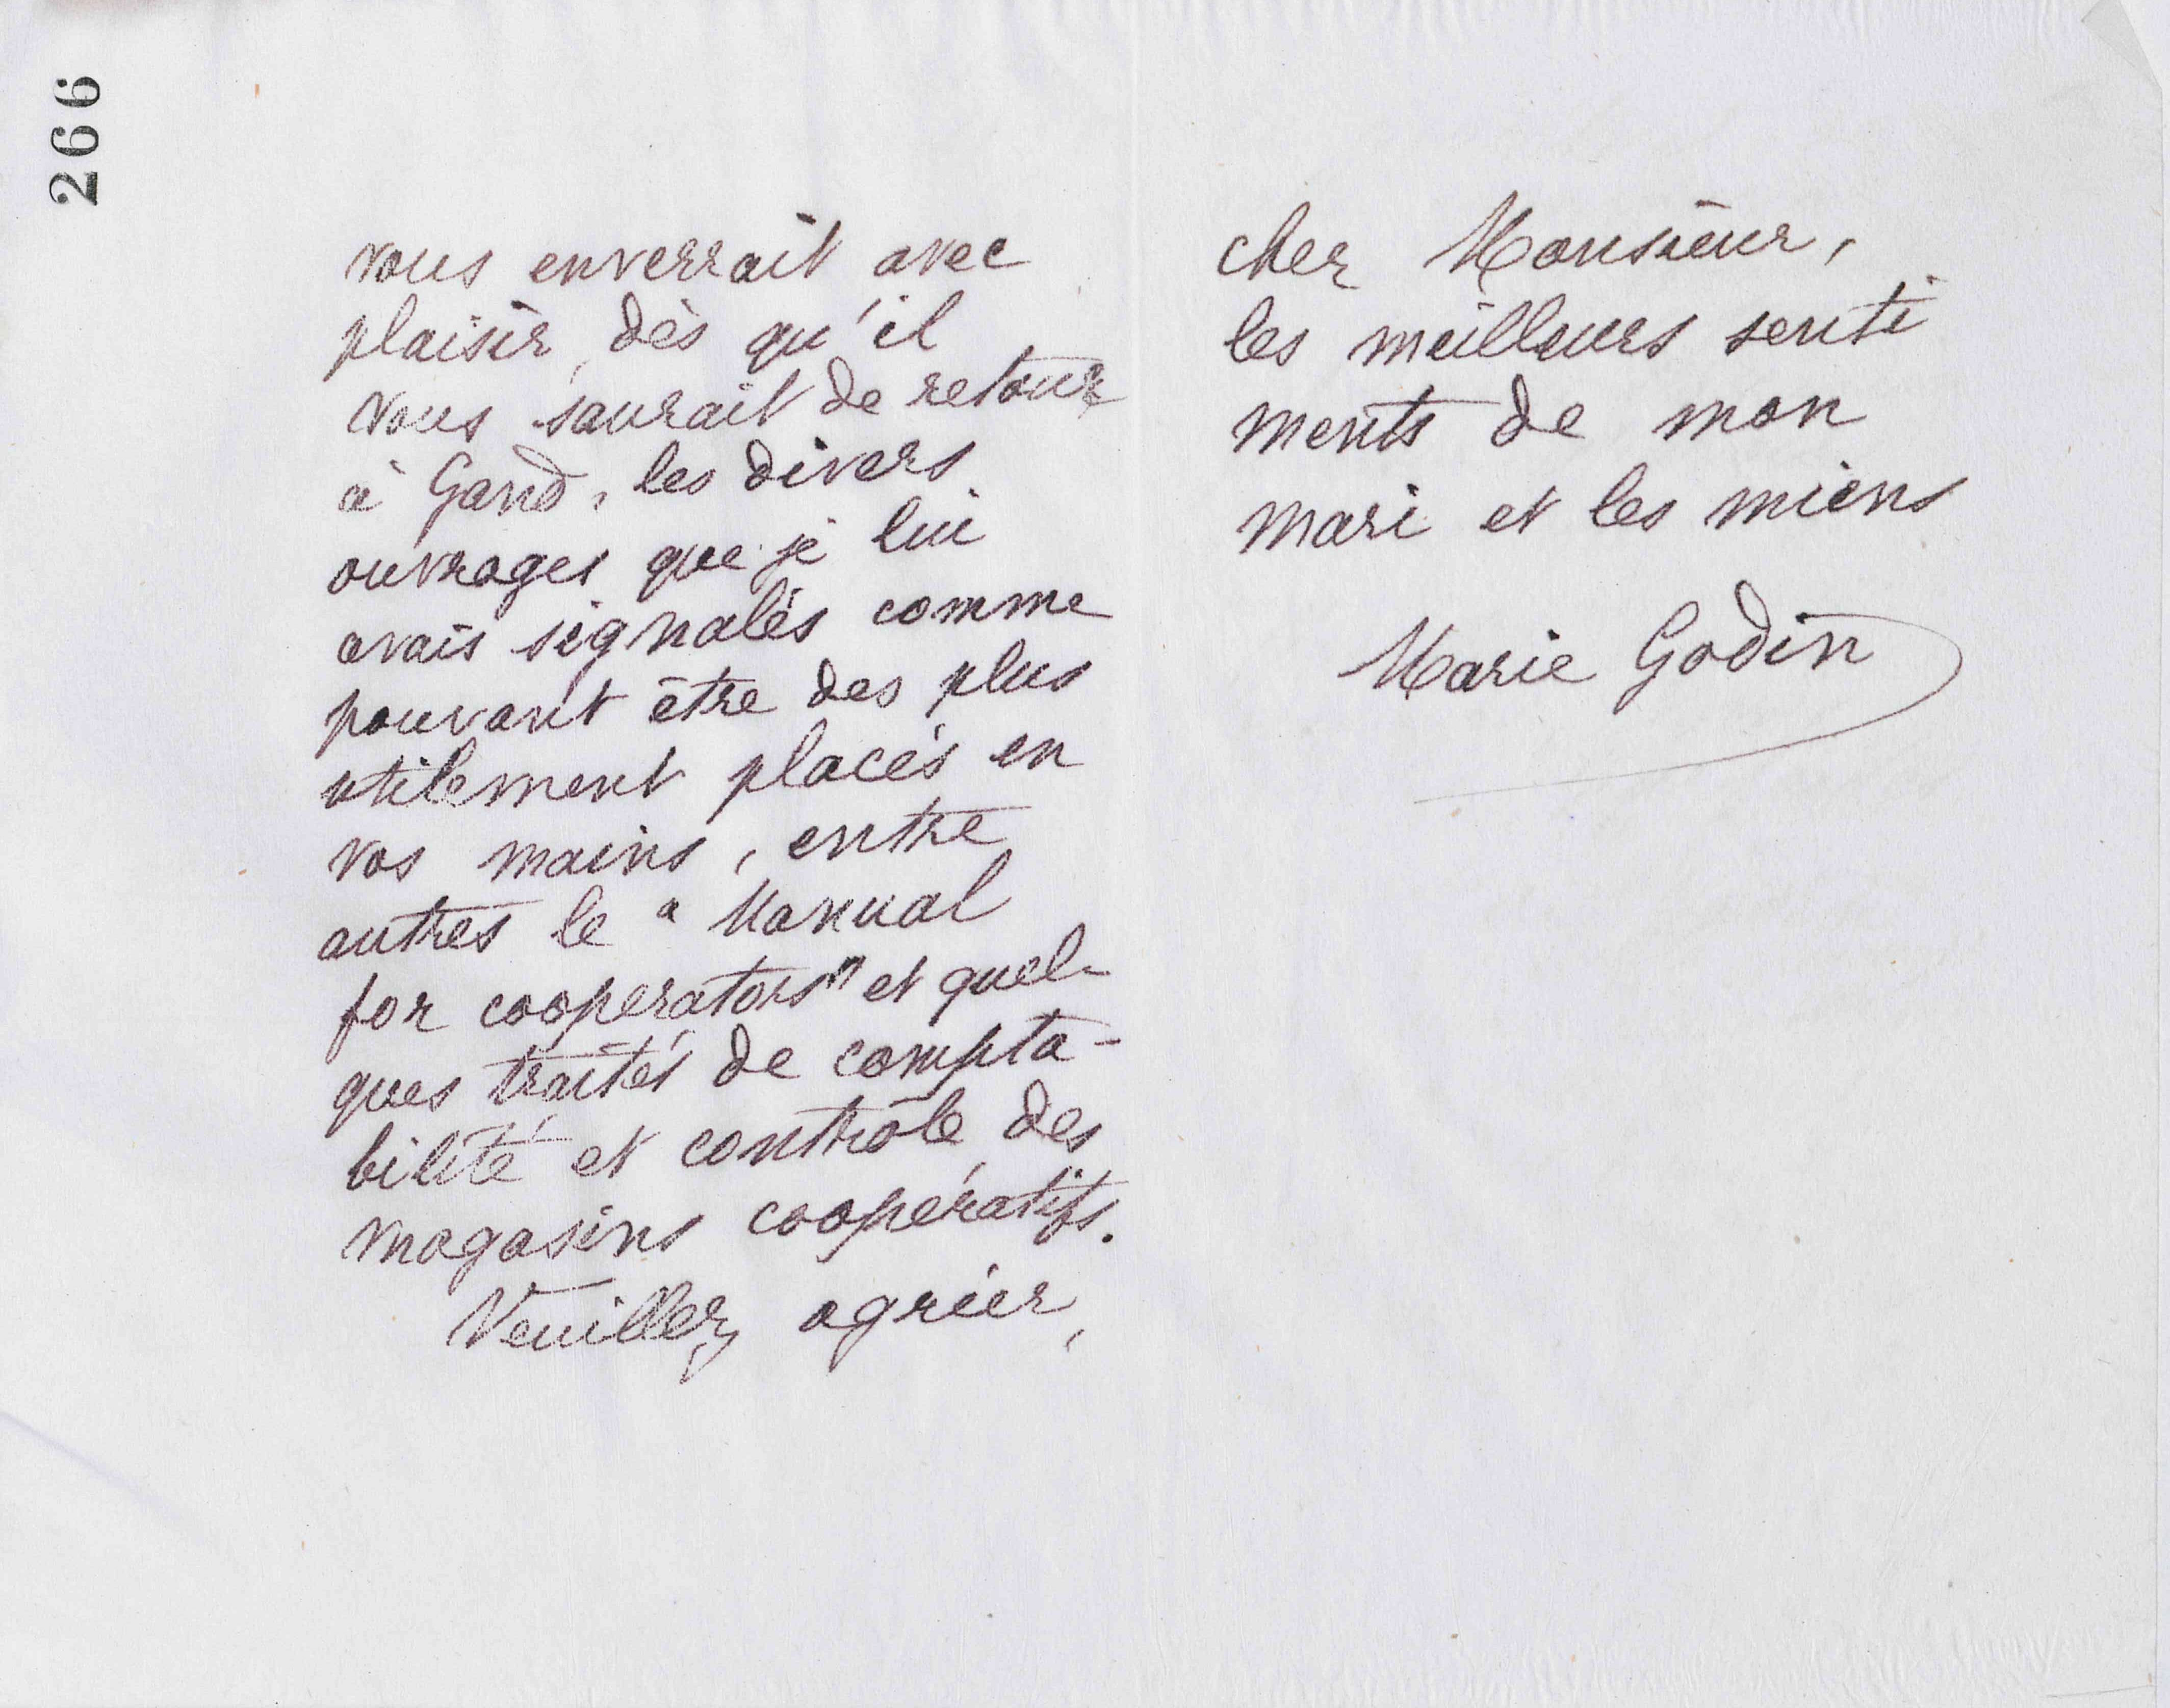 266
vous enverrait avec
plaisir, dès qu'il
vous saurait de retour
à Gand, les divers
ouvrages que je lui
avais signalés comme
pouvant être des plus
utilement placés en
vos mains, entre
autres le "Manual
for cooperators" et quel-
ques traités de compta-
bilité et contrôle des
magasins coopératifs.
Veuillez agréer,
cher Monsieur,
les meilleurs senti
ments de mon
mari et les miens
Marie Godin